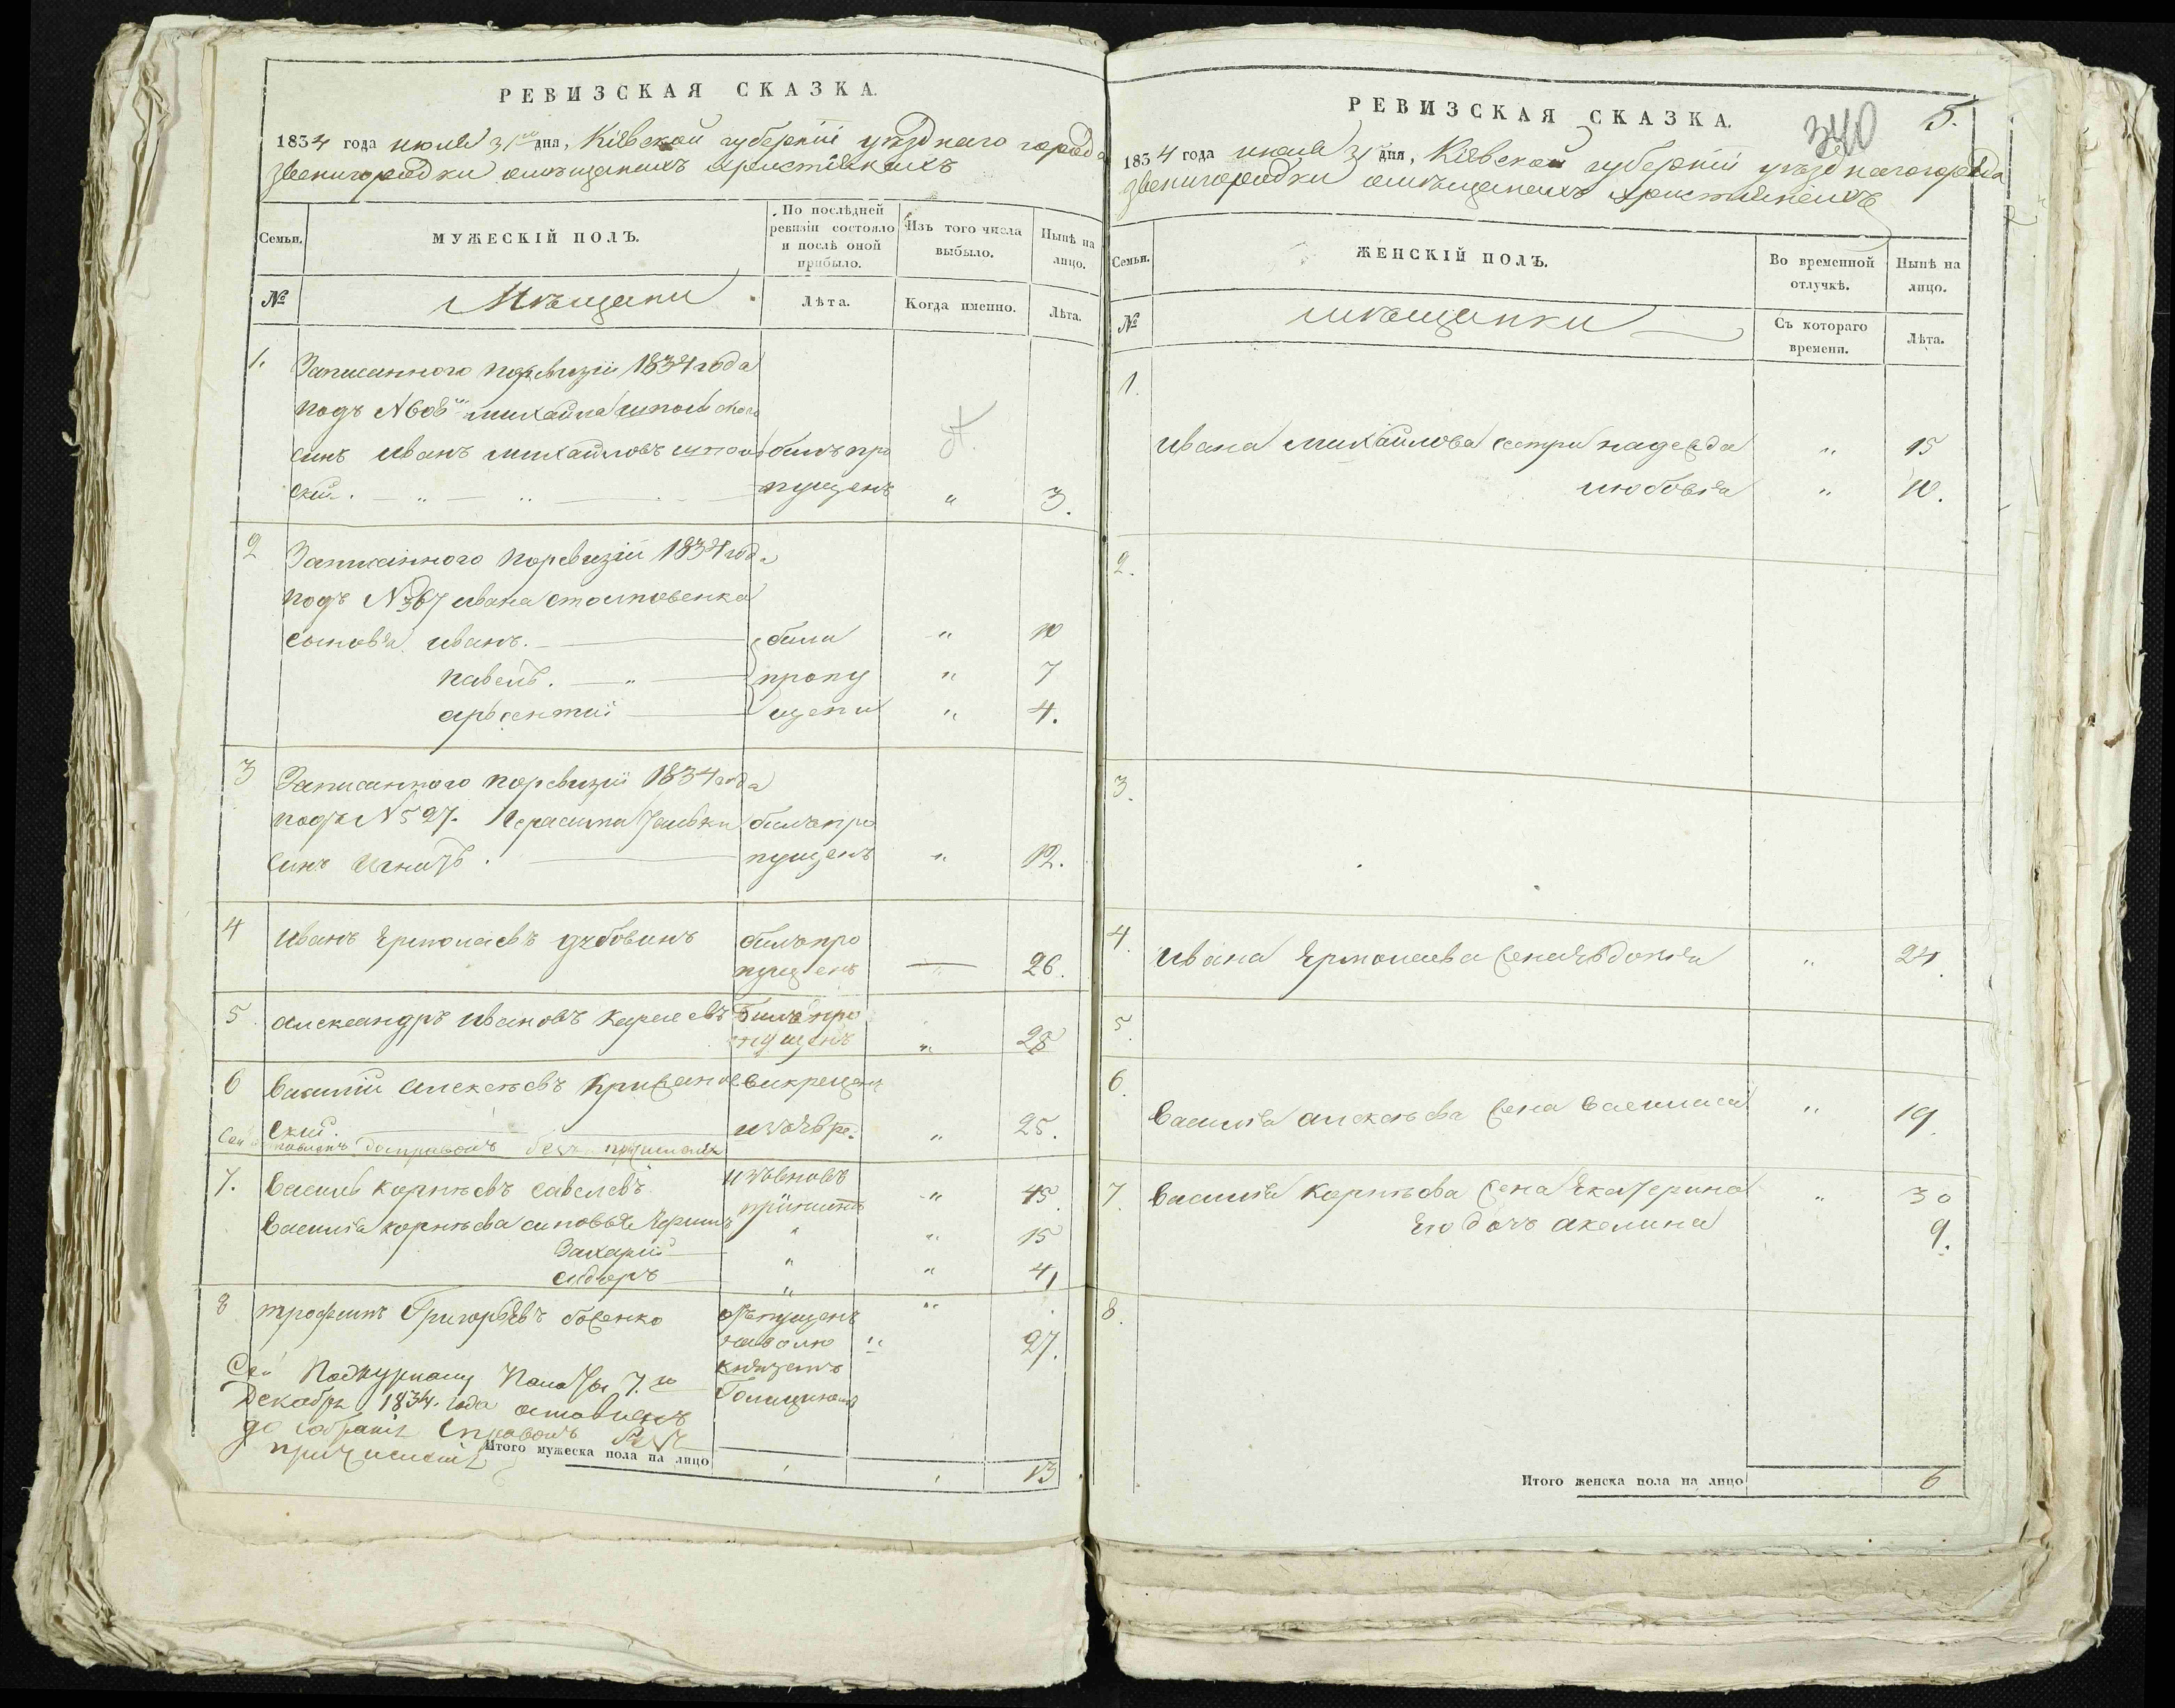 РЕВИЗСКАЯ СКАЗКА.
1834 года июля 31го дня, Кіевской губерніи уѣзднаго города
Звенигородки омѣщанахъ христіянахъ
Семьи.
МУЖЕСКІЙ ПОЛЪ.
По послѣдней ревизіи состояло и послѣ оной прибыло.
Изъ того числа выбыло.
Нынѣ на лицо.
№
Мѣщани
Лѣта.
Когда именно.
Лѣта.
1. Записанного поревизіи 1834 года
подъ №608мъ михайла шпольского
синъ иванъ михайловъ шполь билъ про
ский. пущенъ " 3.
2 Записанного поревизіи 1834 года
подъ № 367 ивана столповенка
сыновья иванъ. били " 10
павелъ. пропу " 7
арсентий щени " 4.
3 Записанного поревизіи 1834 года
подъ № 527. Герасима билъ про
синъ Игнатъ. пущенъ " 12.
4 иванъ Ермолаевъ дубовинъ билъ про
пущенъ " 26.
5 александръ ивановъ билъ про
пущенъ " 28
6 василій алексѣевъ викрещенъ
ский. изъ евре. " 25.
7. василь корнѣевъ савелевъ изъ вновь " 45.
василія корнѣева синовья причислен " 15
Захарій " " 4
сидоръ " "
8 трофимъ Григорьевъ боженко отпущенъ "
на волю " 27.
княземъ
Голицинымъ
Сей 7.го
Декабря 1834. года оставленъ
до справокъ безъ
причисления
Итого мужеска пола на лицо 13
РЕВИЗСКАЯ СКАЗКА.
340 5.
1834 года июля 31 дня, Кіевской губерніи уѣзднаго города
Звенигородки омѣщанахъ христіянахъ
Семьи.
ЖЕНСКІЙ ПОЛЪ.
Во временной отлучкѣ.
Нынѣ на лицо.
№
мѣщанки
Съ котораго времени.
Лѣта.
1.
ивана михайлова сестри надежда " 15
любовья " 10.
2.
3.
4. ивана Ермолаева жена Евдокія " 24.
5.
6.
василія алексѣева жена василиса " 19.
7. василія корнѣева жена Екатерина " 30
Его дочь акелина 9.
8.
Итого женска пола на лицо 6